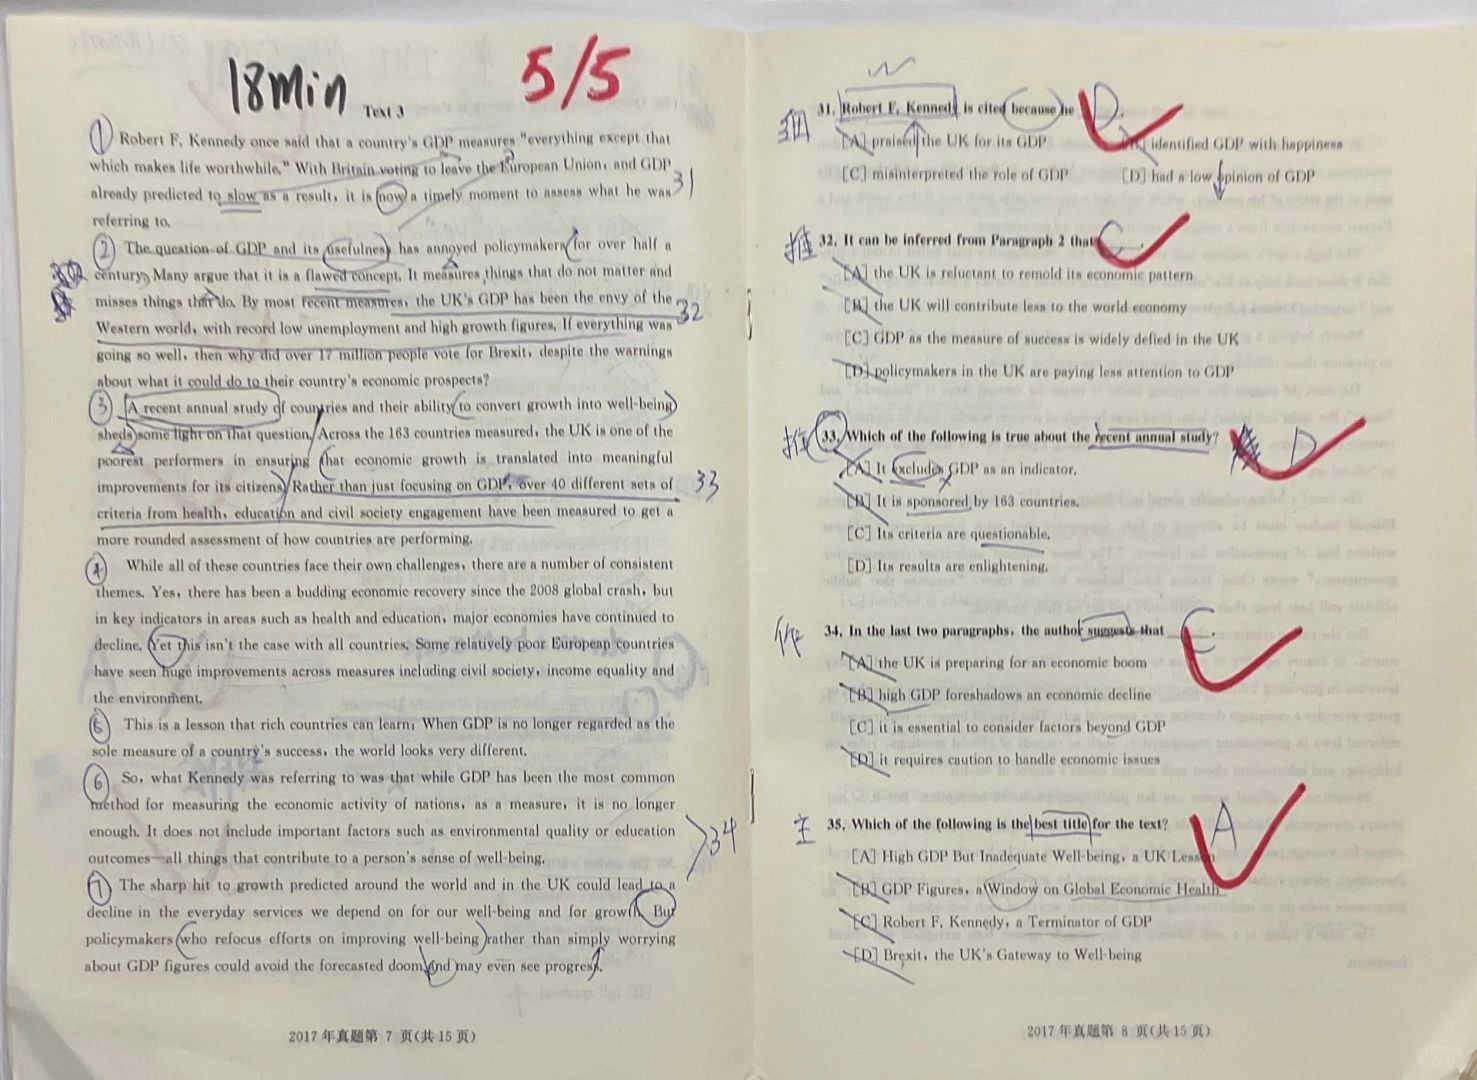 18min
5/5
Text 3
① Robert F. Kennedy once said that a country's GDP measures "everything except that
which makes life worthwhile." With Britain voting to leave the European Union, and GDP
already predicted to slow as a result, it is now a timely moment to assess what he was 31
referring to.
② The question of GDP and its usefulness has annoyed policymakers for over half a
century. Many argue that it is a flawed concept. It measures things that do not matter and
misses things that do. By most recent measures, the UK's GDP has been the envy of the 32
Western world, with record low unemployment and high growth figures. If everything was
going so well, then why did over 17 million people vote for Brexit, despite the warnings
about what it could do to their country's economic prospects?
③ A recent annual study of countries and their ability to convert growth into well-being
sheds some light on that question. Across the 163 countries measured, the UK is one of the
poorest performers in ensuring that economic growth is translated into meaningful
improvements for its citizens. Rather than just focusing on GDP, over 40 different sets of 33
criteria from health, education and civil society engagement have been measured to get a
more rounded assessment of how countries are performing.
④ While all of these countries face their own challenges, there are a number of consistent
themes. Yes, there has been a budding economic recovery since the 2008 global crash, but
in key indicators in areas such as health and education, major economies have continued to
decline. Yet this isn't the case with all countries. Some relatively poor European countries
have seen huge improvements across measures including civil society, income equality and
the environment.
⑤ This is a lesson that rich countries can learn. When GDP is no longer regarded as the
sole measure of a country's success, the world looks very different.
⑥ So, what Kennedy was referring to was that while GDP has been the most common
method for measuring the economic activity of nations, as a measure, it is no longer
enough. It does not include important factors such as environmental quality or education 34
outcomes—all things that contribute to a person's sense of well-being.
⑦ The sharp hit to growth predicted around the world and in the UK could lead to a
decline in the everyday services we depend on for our well-being and for growth. But
policymakers who refocus efforts on improving well-being rather than simply worrying
about GDP figures could avoid the forecasted doom and may even see progress.
2017 年真题第 7 页(共 15 页)
31. Robert F. Kennedy is cited because he D.
[A] praised the UK for its GDP [B] identified GDP with happiness
[C] misinterpreted the role of GDP [D] had a low opinion of GDP
推 32. It can be inferred from Paragraph 2 that C.
[A] the UK is reluctant to remold its economic pattern
[B] the UK will contribute less to the world economy
[C] GDP as the measure of success is widely defied in the UK
[D] policymakers in the UK are paying less attention to GDP
推 33. Which of the following is true about the recent annual study? D
[A] It excludes GDP as an indicator.
[B] It is sponsored by 163 countries.
[C] Its criteria are questionable.
[D] Its results are enlightening.
34. In the last two paragraphs, the author suggests that C.
[A] the UK is preparing for an economic boom
[B] high GDP foreshadows an economic decline
[C] it is essential to consider factors beyond GDP
[D] it requires caution to handle economic issues
主 35. Which of the following is the best title for the text? A
[A] High GDP But Inadequate Well-being, a UK Lesson
[B] GDP Figures, a Window on Global Economic Health
[C] Robert F. Kennedy, a Terminator of GDP
[D] Brexit, the UK's Gateway to Well-being
2017 年真题第 8 页(共 15 页)